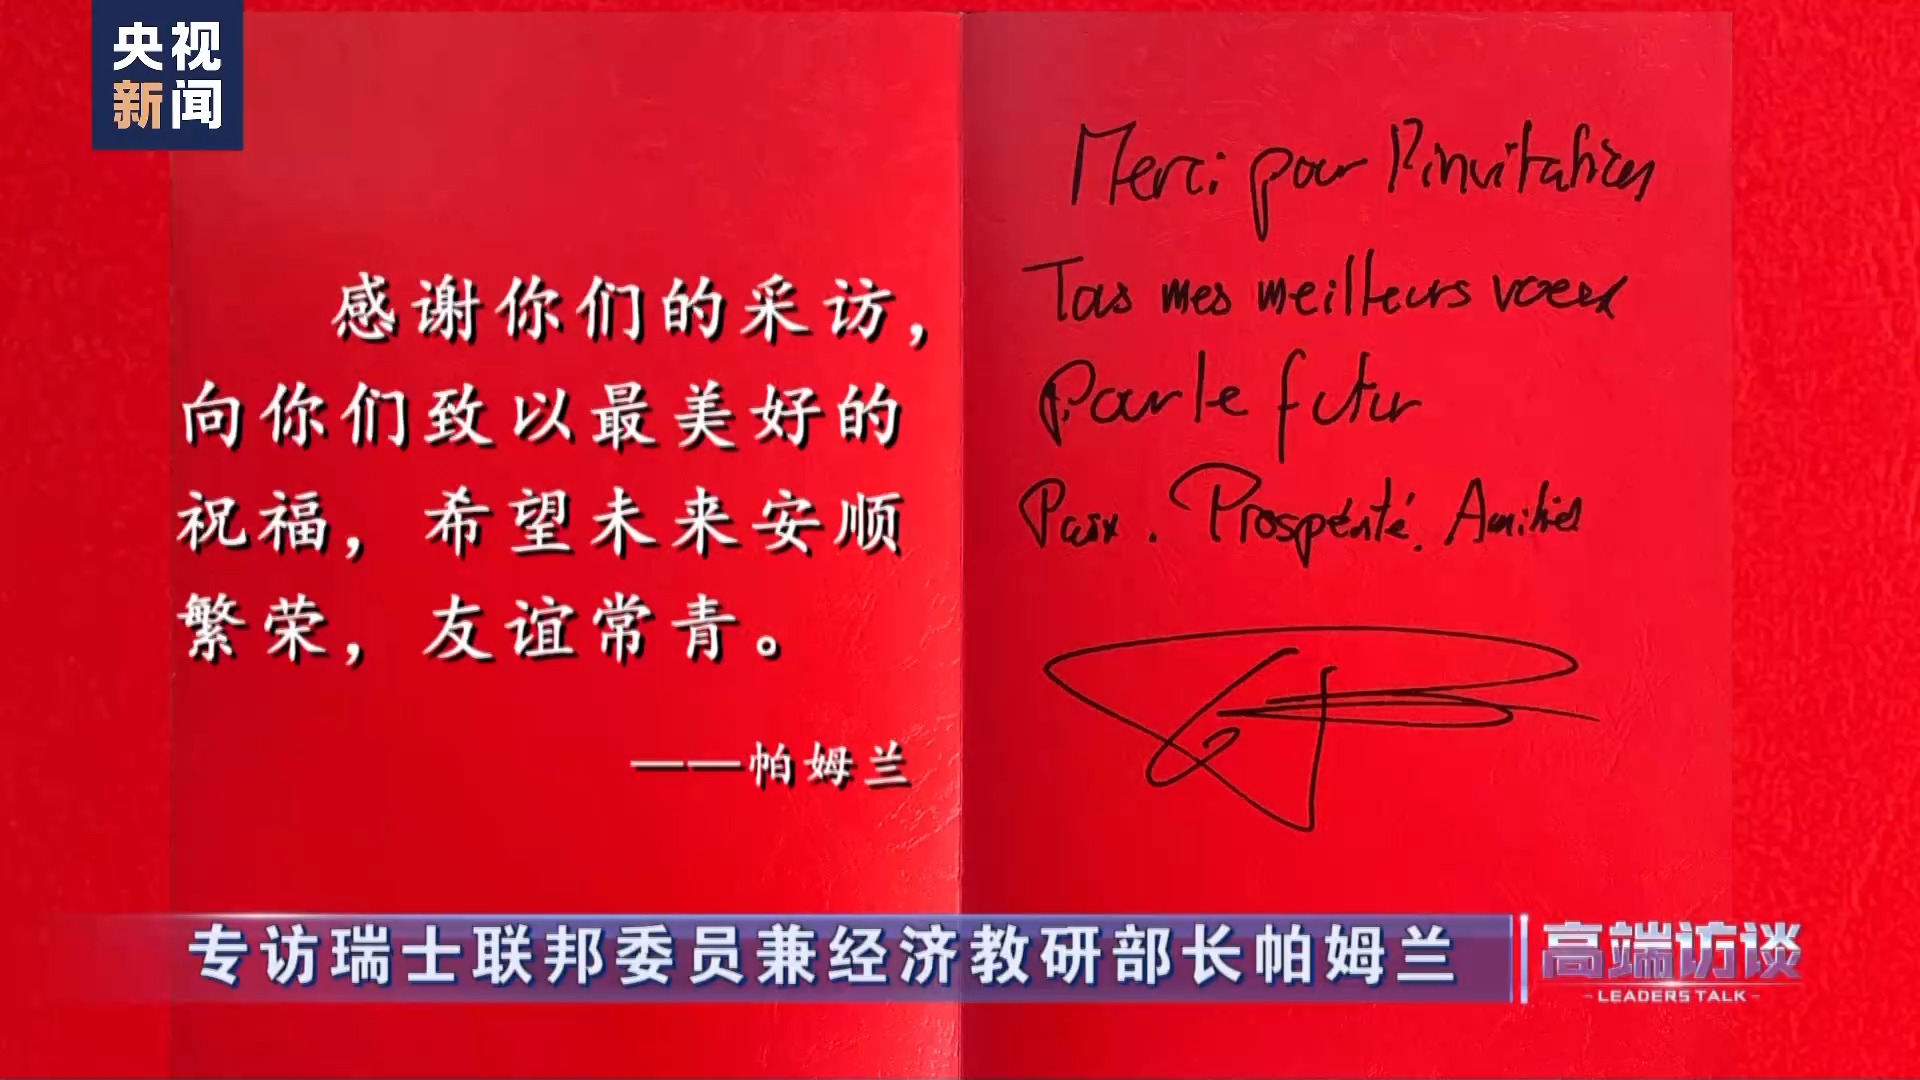 央视
新闻
感谢你们的采访，
向你们致以最美好的
祝福，希望未来安顺
繁荣，友谊常青。
——帕姆兰
Merci pour l'invitation
Tous mes meilleurs voeux
Pour le futur
Paix. Prospérité. Amitié
专访瑞士联邦委员兼经济教研部长帕姆兰
高端访谈
LEADERS TALK